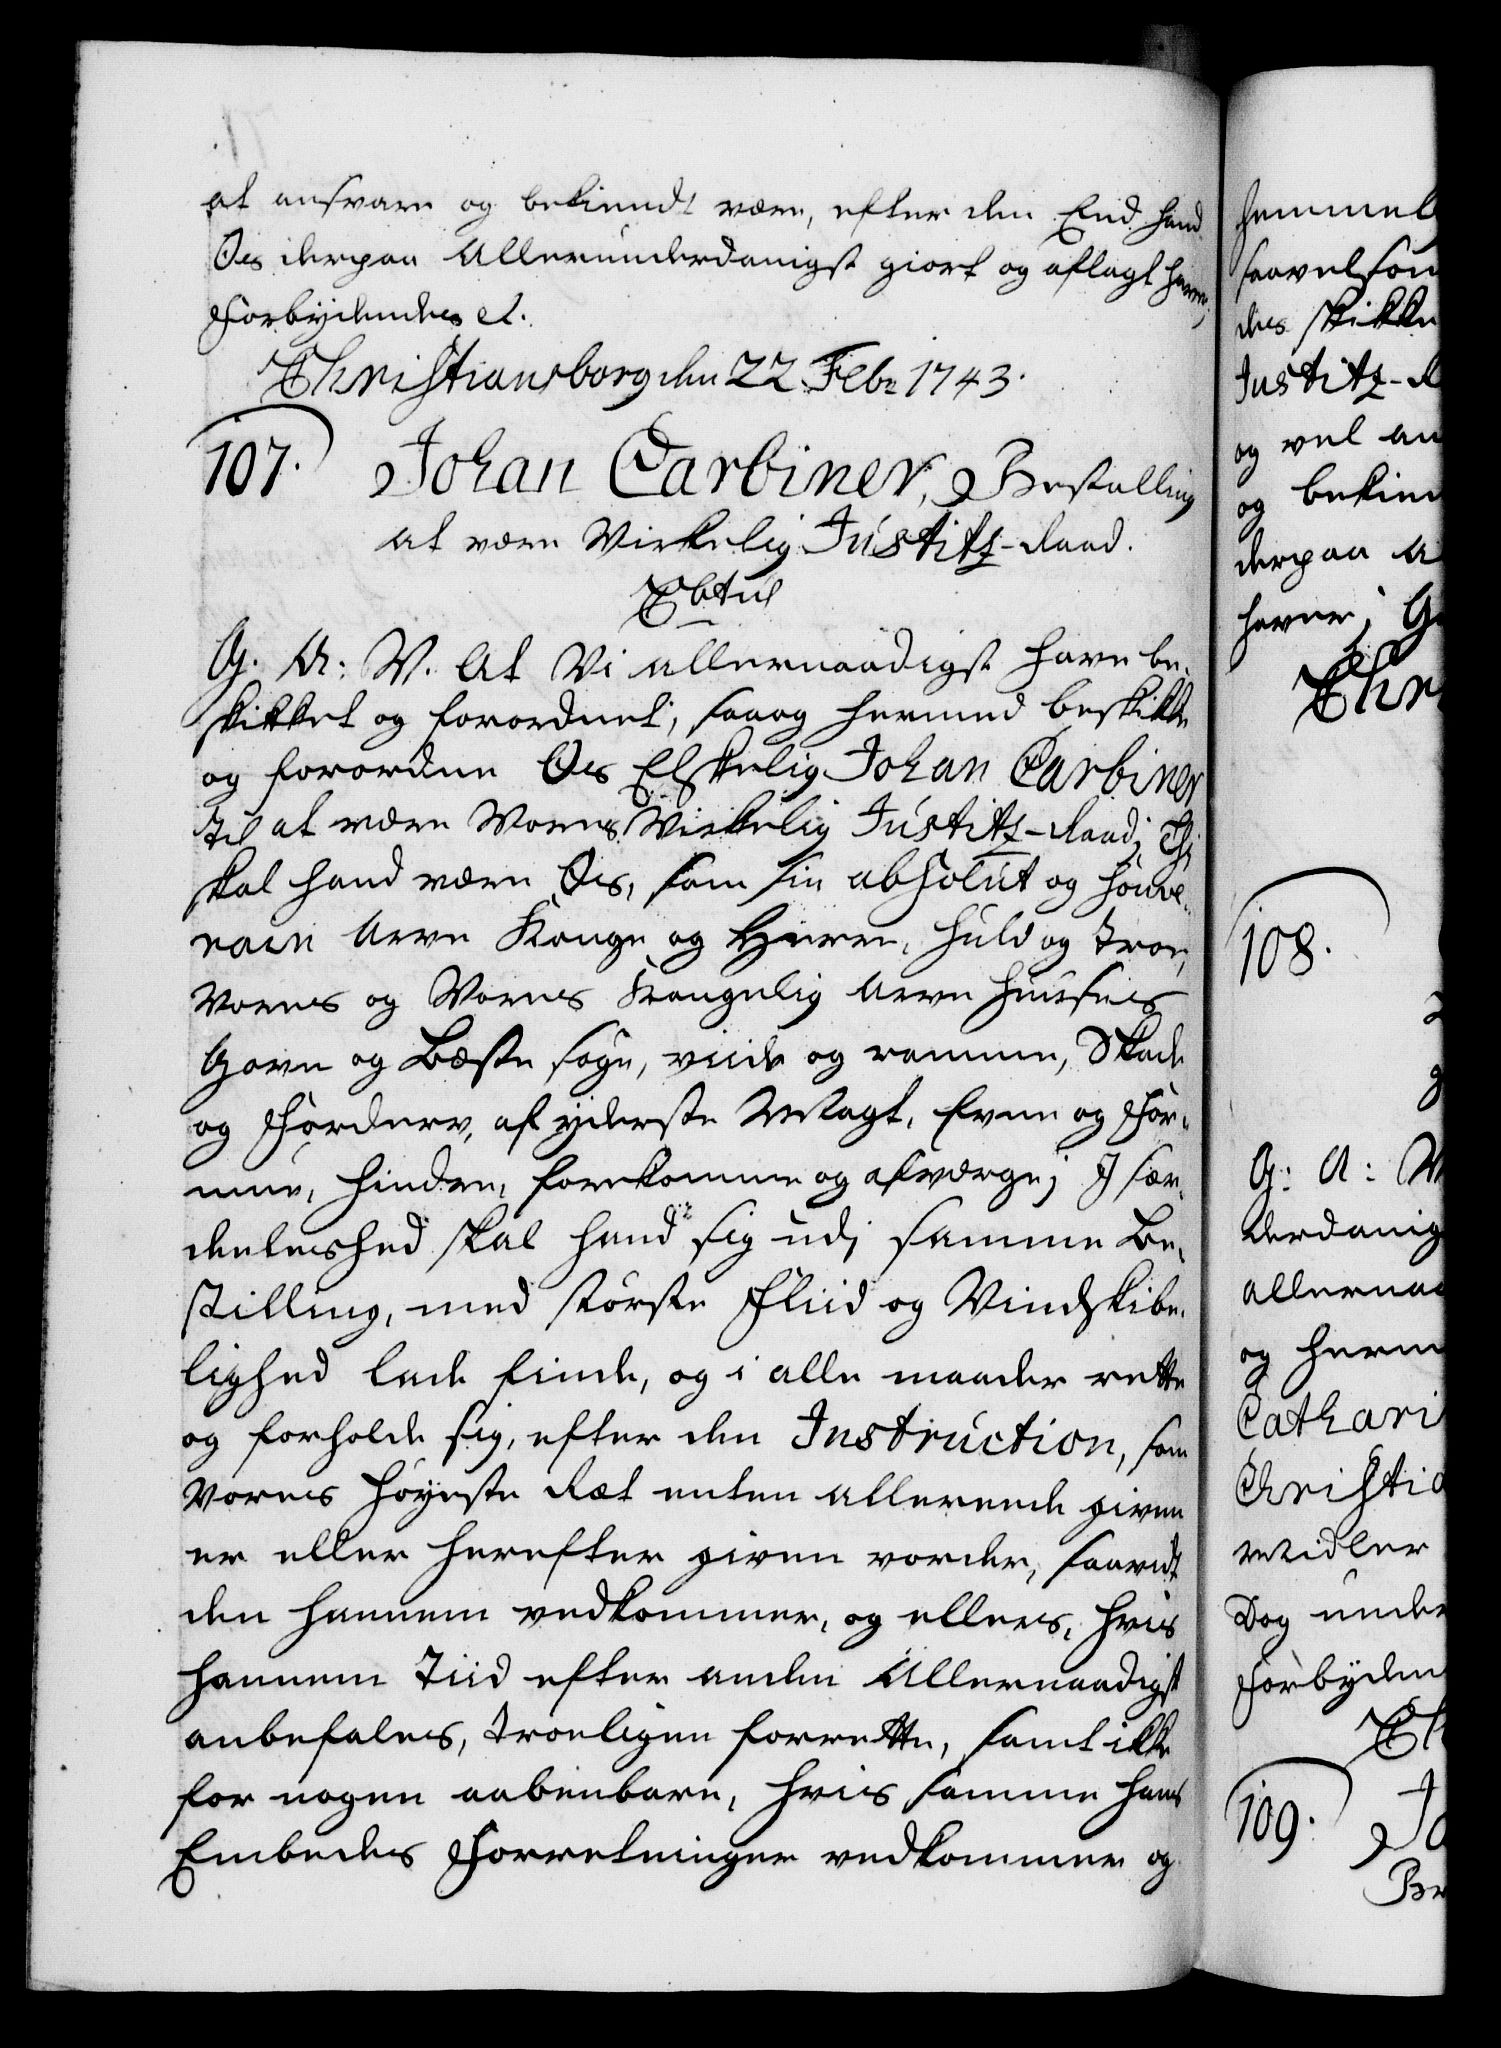 at ansvare og bekiendt være, efter den Eed hand
Os derpaa Allerunderdanigst giort og aflagt haver,
Forbydendes et.
Christiansborg den 22 Febr 1743.
107. Johan Carbiner, Bestalling
at være Virkelig Justitz-Raad.
G. A: V. At Vi allernaadigst have be-
skikket og forordnet, saa og hermed beskikke
og forordne Os Elskelig Johan Carbiner
til at være Vores Virkelig Justitz-Raad; Thi
skal hand være Os, som sin absolut og souve-
rain Arve Konge og Herre, huld og troe,
Vores og Vores Kongelig Arve Huuses
Gavn og Bæste søge, viide og ramme, Skade
og Forderv, af yderste Magt, Evne og For-
mue, hindre, forekomme og afværge; J sær-
deeleshed skal hand sig udj samme Be-
stilling, med største Fliid og Vindskibe-
lighed lade finde, og i alle maader rette
og forholde sig, efter den Instruction, som
Vores Høyeste Ræt enten allereede given
er eller herefter given vorder, saavidt
den hannem vedkommer, og ellers, hvis
hannem Tiid efter anden Allernaadigst
anbefales, troeligen forrette, samt ikke
for nogen aabenbare, hvis samme hans
Embedes Forretninger vedkommer og
hemmel
saavelsom
des skikke
Justitz-R
og vel an
og bekien
derpaa A
haver; G
Chr
108.
G: A: V
derdanig
allernaa
og herm
Cathari
Christia
Midler
Dog unde
Forbyden
Ch
109. Jo
Be